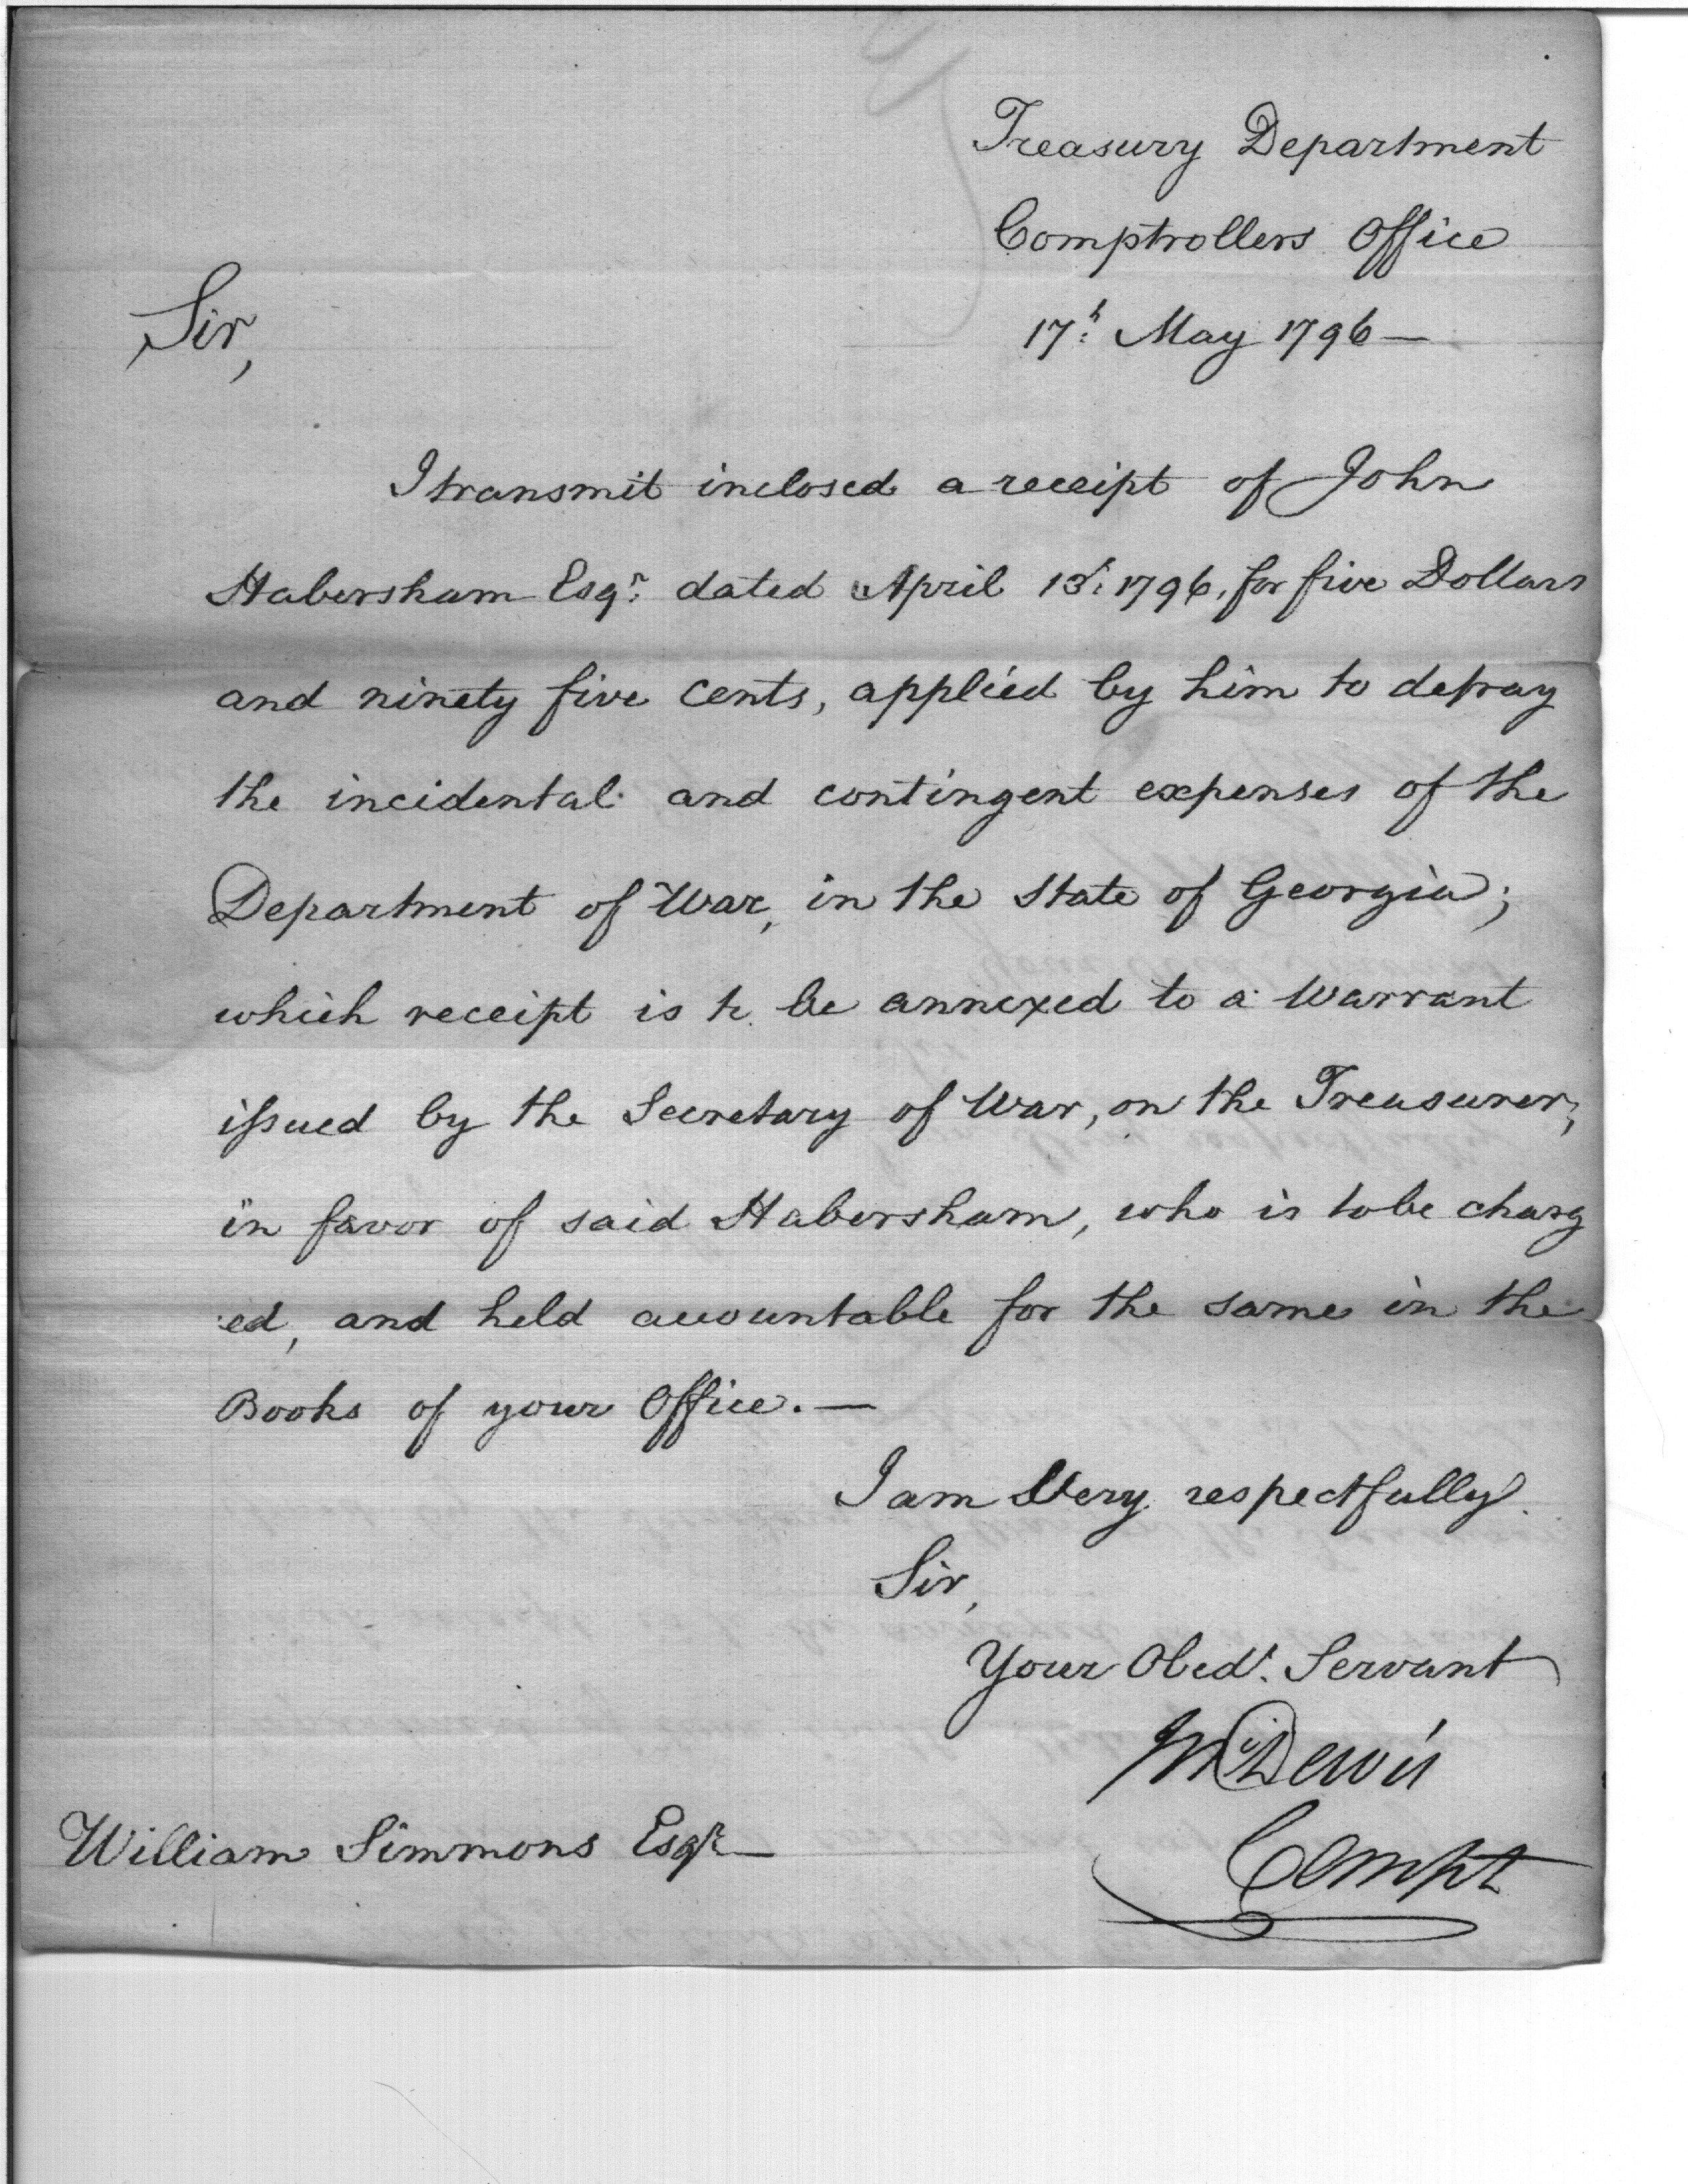 Treasury Department
Comptrollers Office
Sir,
17.h May 1796 —
I transmit inclosed a receipt of John
Habersham Esqr. dated April 13.' 1796, for five Dollars
and ninety five Cents, applied by him to defray
the incidental and contingent expenses of the
Department of War, in the State of Georgia;
which receipt is to be annexed to a Warrant
issued by the Secretary of War, on the Treasurer;
in favor of said Habersham, who is to be charg
ed, and held accountable for the same in the
Books of your Office. —
I am Very respectfully.
Sir,
Your Obedt. Servant
Compt
William Simmons Esqr —